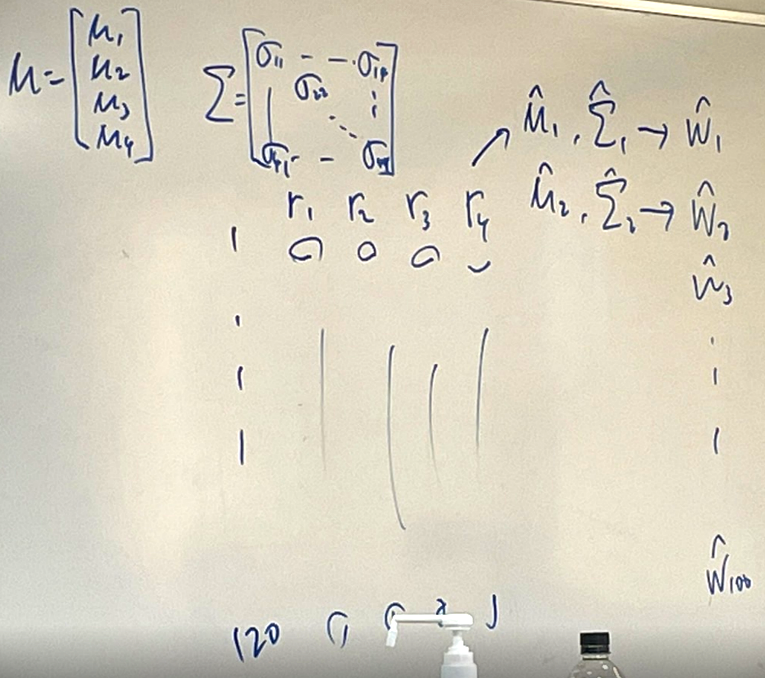 μ = [μ₁ μ₂ μ₃ μ₄]
Σ = [σ₁₁ - - · σ₁₄ σ₂₂ σ₄₁ - - σ₄₄]
μ̂₁, Σ̂₁ → ŵ₁
μ̂₂, Σ̂₂ → ŵ₂
r₁ r₂ r₃ r₄
1
ŵ₃
ŵ₁₀₀
120